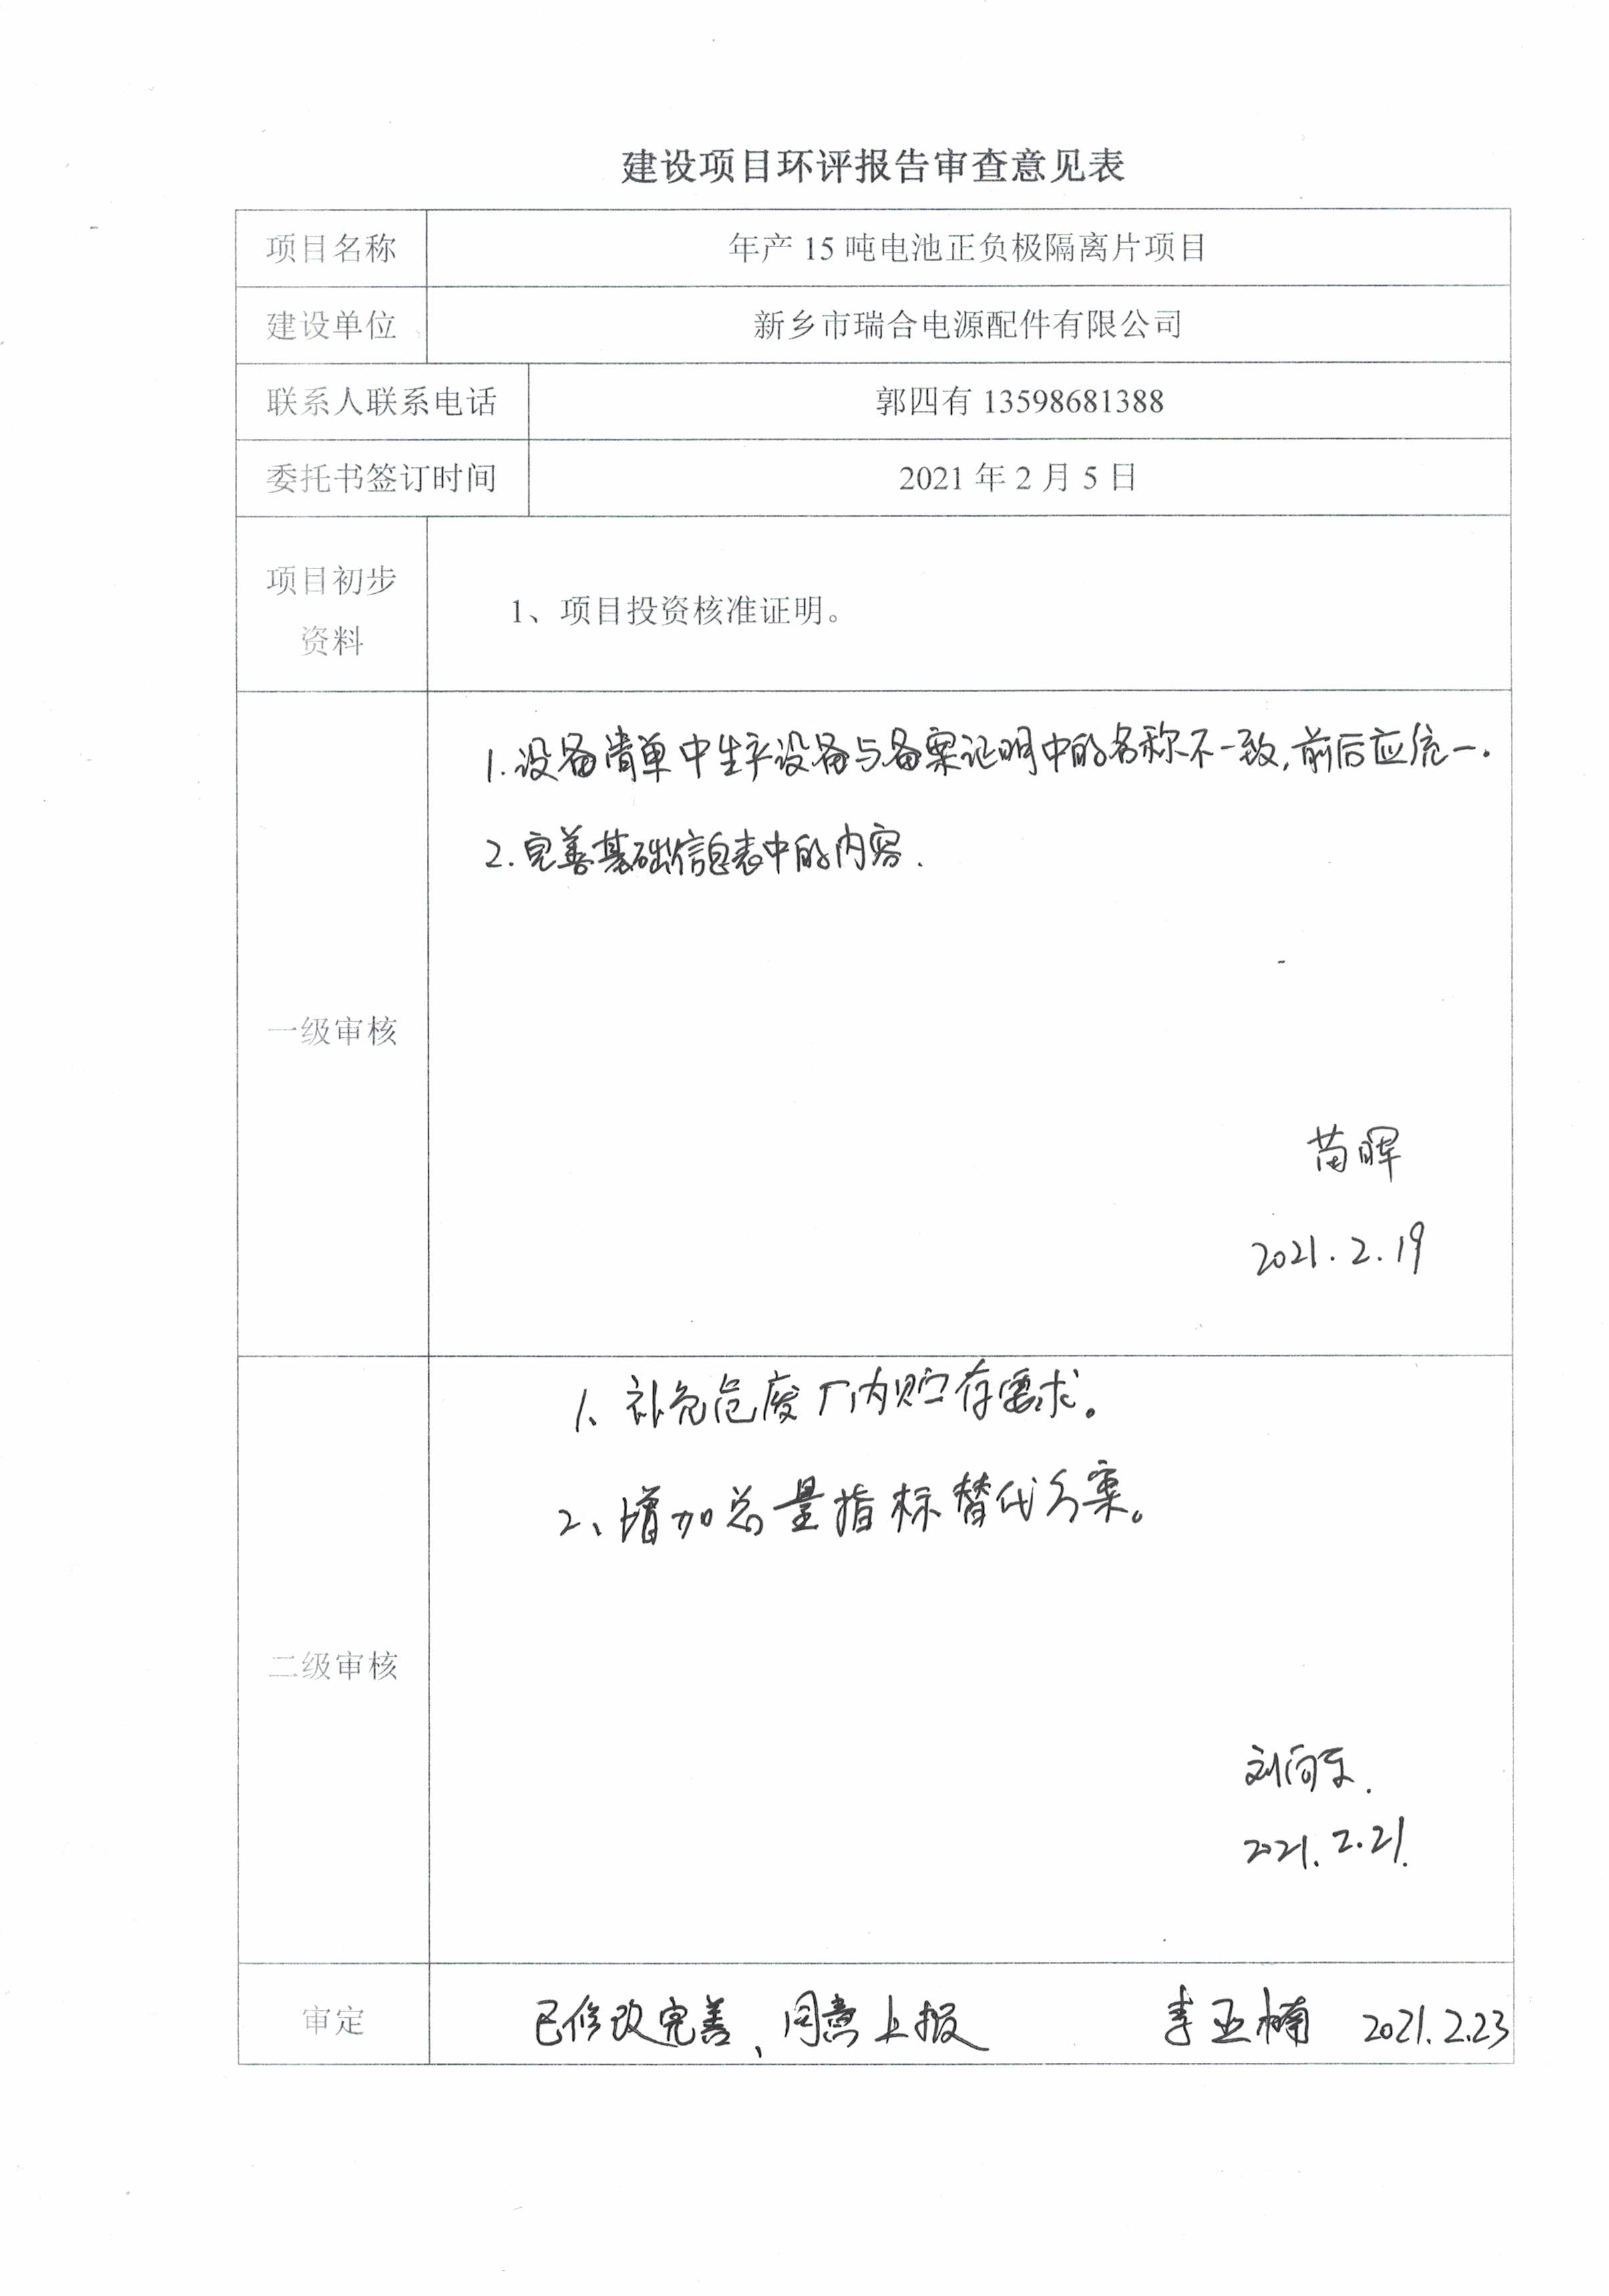 建设项目环评报告审查意见表
项目名称 年产 15 吨电池正负极隔离片项目
建设单位 新乡市瑞合电源配件有限公司
联系人联系电话 郭四有 13598681388
委托书签订时间 2021 年 2 月 5 日
项目初步
资料
1、项目投资核准证明。
1.设备清单中生产设备与备案证明中的名称不一致,前后应统一.
2.完善基础信息表中的内容.
一级审核
苗晖
2021.2.19
1、补充危废厂内贮存要求。
2、增加总量指标替代方案。
二级审核
刘向东.
2021.2.21.
审定 已修改完善、同意上报 李亚楠 2021.2.23